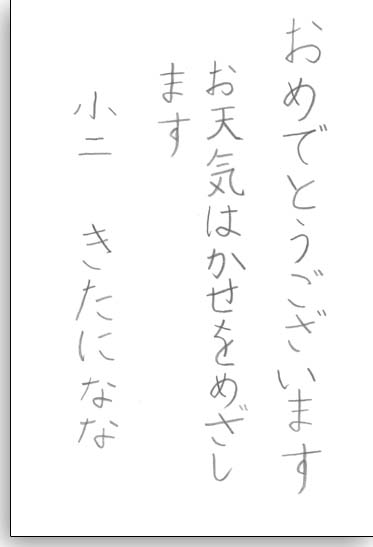 おめでとうございます
お天気はかせをめざし
ます
小二 きたになな